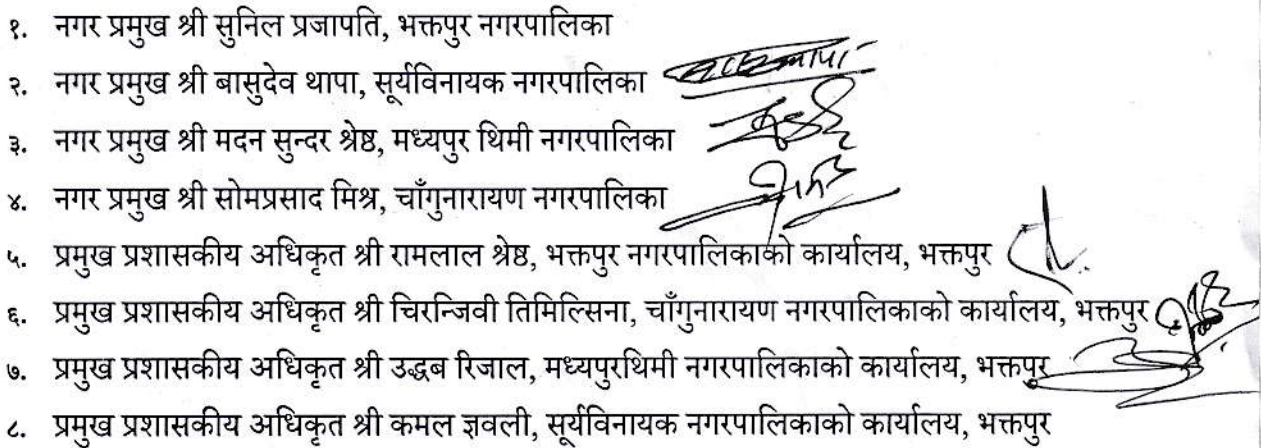 १. नगर प्रमुख श्री सुनिल प्रजापति, भक्तपुर नगरपालिका
२. नगर प्रमुख श्री बासुदेव थापा, सूर्यविनायक नगरपालिका
३. नगर प्रमुख श्री मदन सुन्दर श्रेष्ठ, मध्यपुर थिमी नगरपालिका
४. नगर प्रमुख श्री सोमप्रसाद मिश्र, चाँगुनारायण नगरपालिका
५. प्रमुख प्रशासकीय अधिकृत श्री रामलाल श्रेष्ठ, भक्तपुर नगरपालिकाको कार्यालय, भक्तपुर
६. प्रमुख प्रशासकीय अधिकृत श्री चिरन्जिवी तिमिल्सिना, चाँगुनारायण नगरपालिकाको कार्यालय, भक्तपुर
७. प्रमुख प्रशासकीय अधिकृत श्री उद्धब रिजाल, मध्यपुरथिमी नगरपालिकाको कार्यालय, भक्तपुर
८. प्रमुख प्रशासकीय अधिकृत श्री कमल ज्ञवली, सूर्यविनायक नगरपालिकाको कार्यालय, भक्तपुर